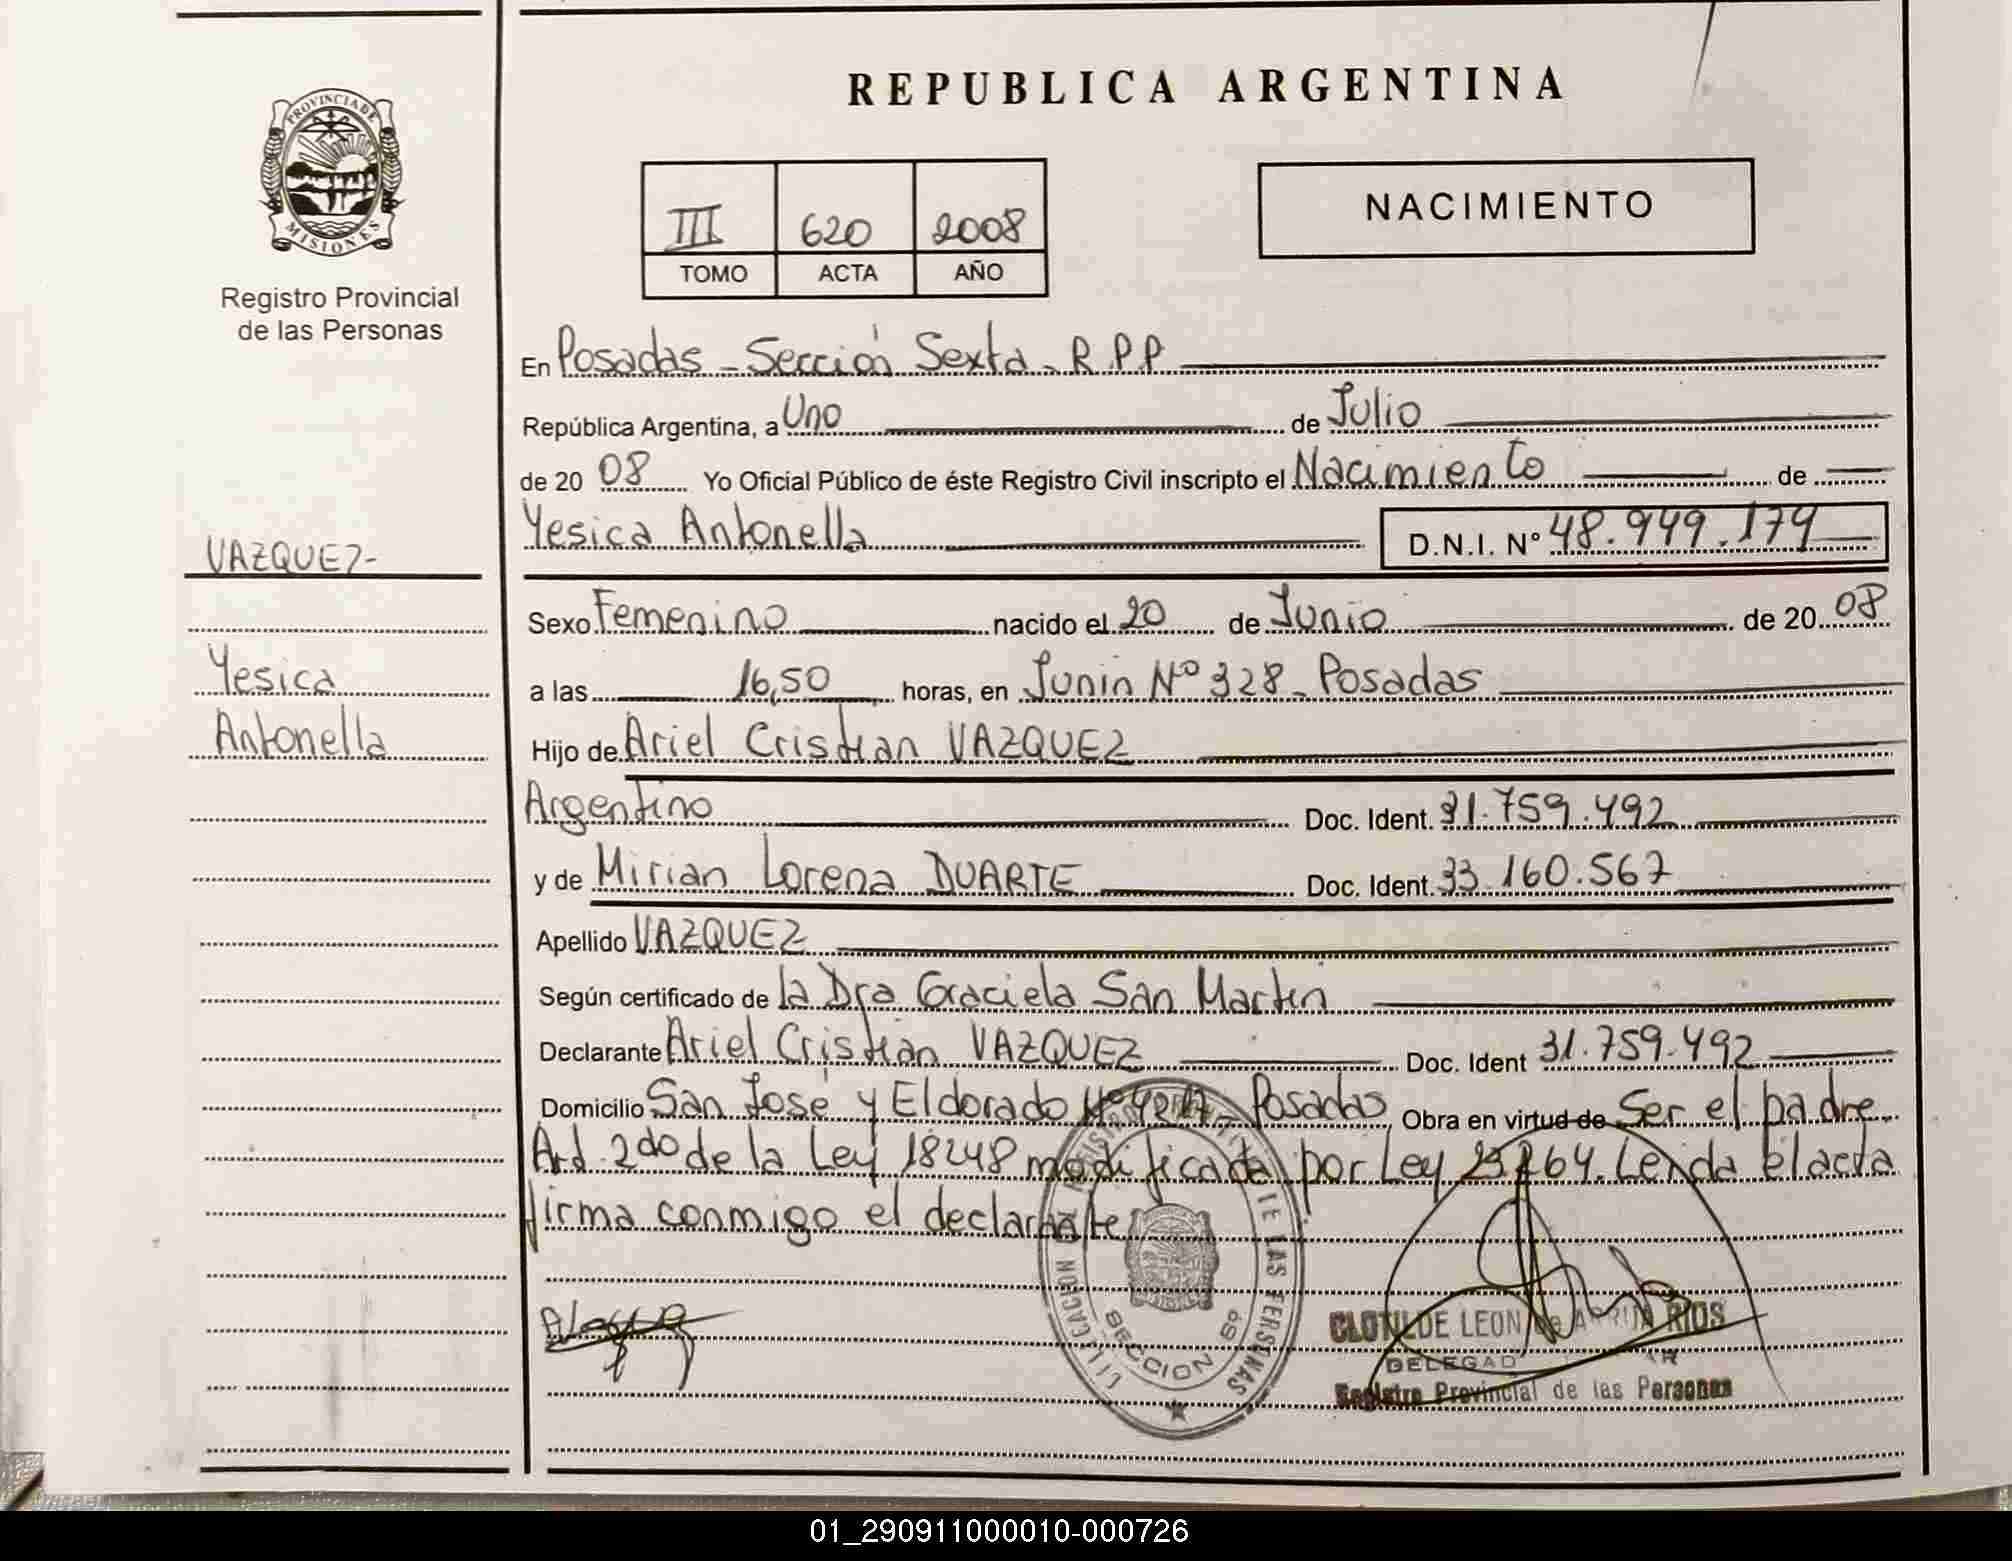 REPUBLICA ARGENTINA
PROVINCIA DE
MISIONES
Registro Provincial
de las Personas
III 620 2008
TOMO ACTA AÑO
NACIMIENTO
En Posadas - Sección Sexta - R.P.P.
República Argentina, a Uno de Julio
de 20 08 Yo Oficial Público de éste Registro Civil inscripto el Nacimiento de
Yesica Antonella D.N.I. Nº 48.949.174
VAZQUEZ-
Sexo Femenino nacido el 20 de Junio de 20 08
Yesica
a las 16,50 horas, en Junin Nº 328 - Posadas
Antonella
Hijo de Ariel Cristian VAZQUEZ
Argentino Doc. Ident. 31.759.492
y de Mirian Lorena DUARTE Doc. Ident. 33.160.567
Apellido VAZQUEZ
Según certificado de la Dra Graciela San Martin
Declarante Ariel Cristian VAZQUEZ Doc. Ident 31.759.492
Domicilio San José y Eldorado Posadas Obra en virtud de Ser el padre
Art. 2do de la Ley 18248 modificada por Ley Leida el acta
firma conmigo el declarante
DE LAS PERSONAS
SECCION
CLOTILDE LEON de RIOS
Registro Provincial de las Personas
01_290911000010-000726